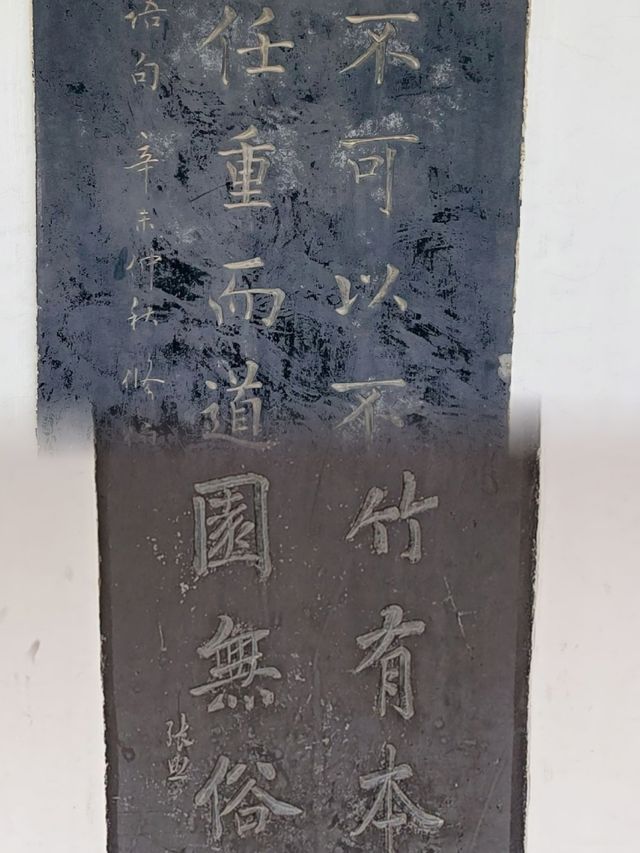 不可以不
任重而道
语句 辛未仲秋 修
竹有本
園無俗
张